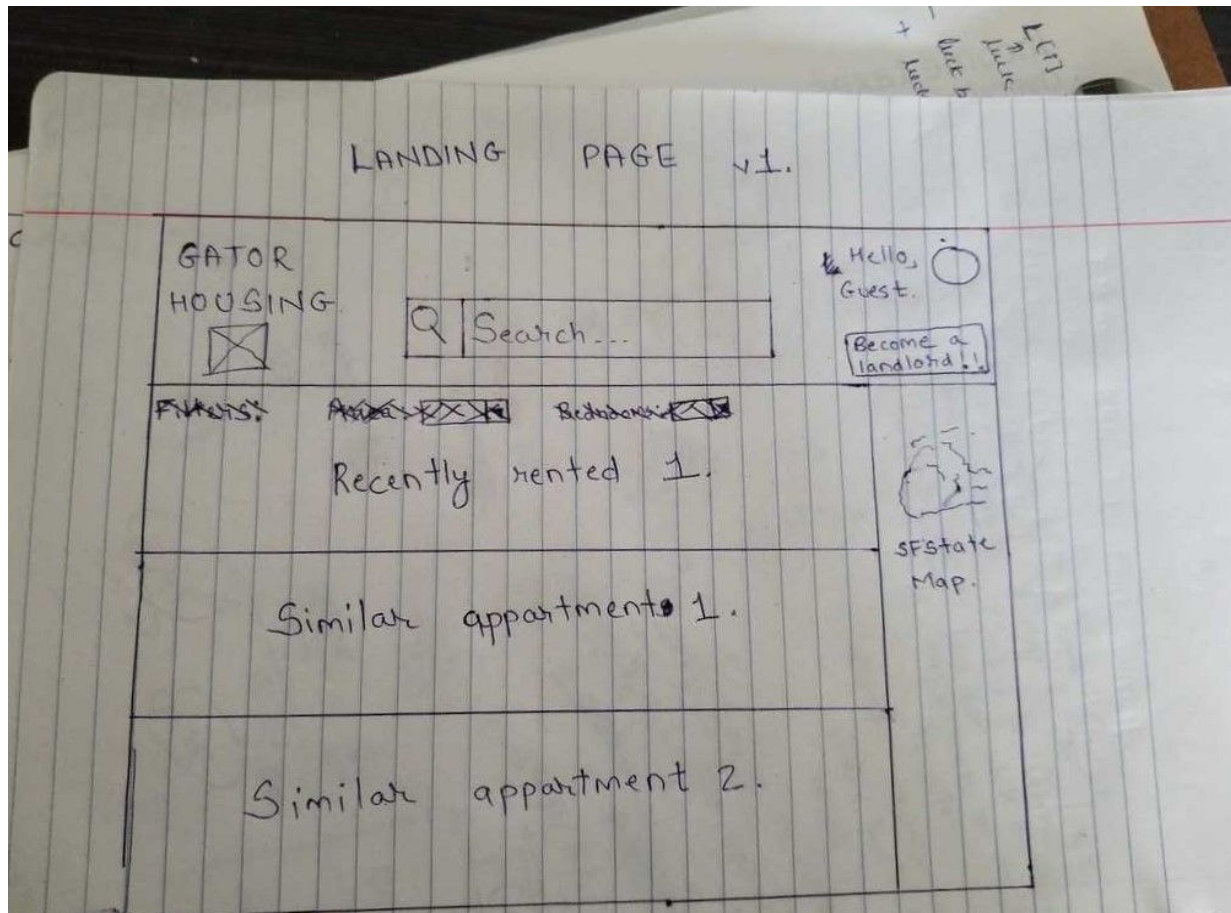 LANDING PAGE v1.
GATOR
HOUSING
Search...
Hello,
Guest.
Become a
landlord!!
Filters:
Bedrooms:
Recently rented 1.
SFState
Map.
Similar appartment 1.
Similar appartment 2.
L[1]